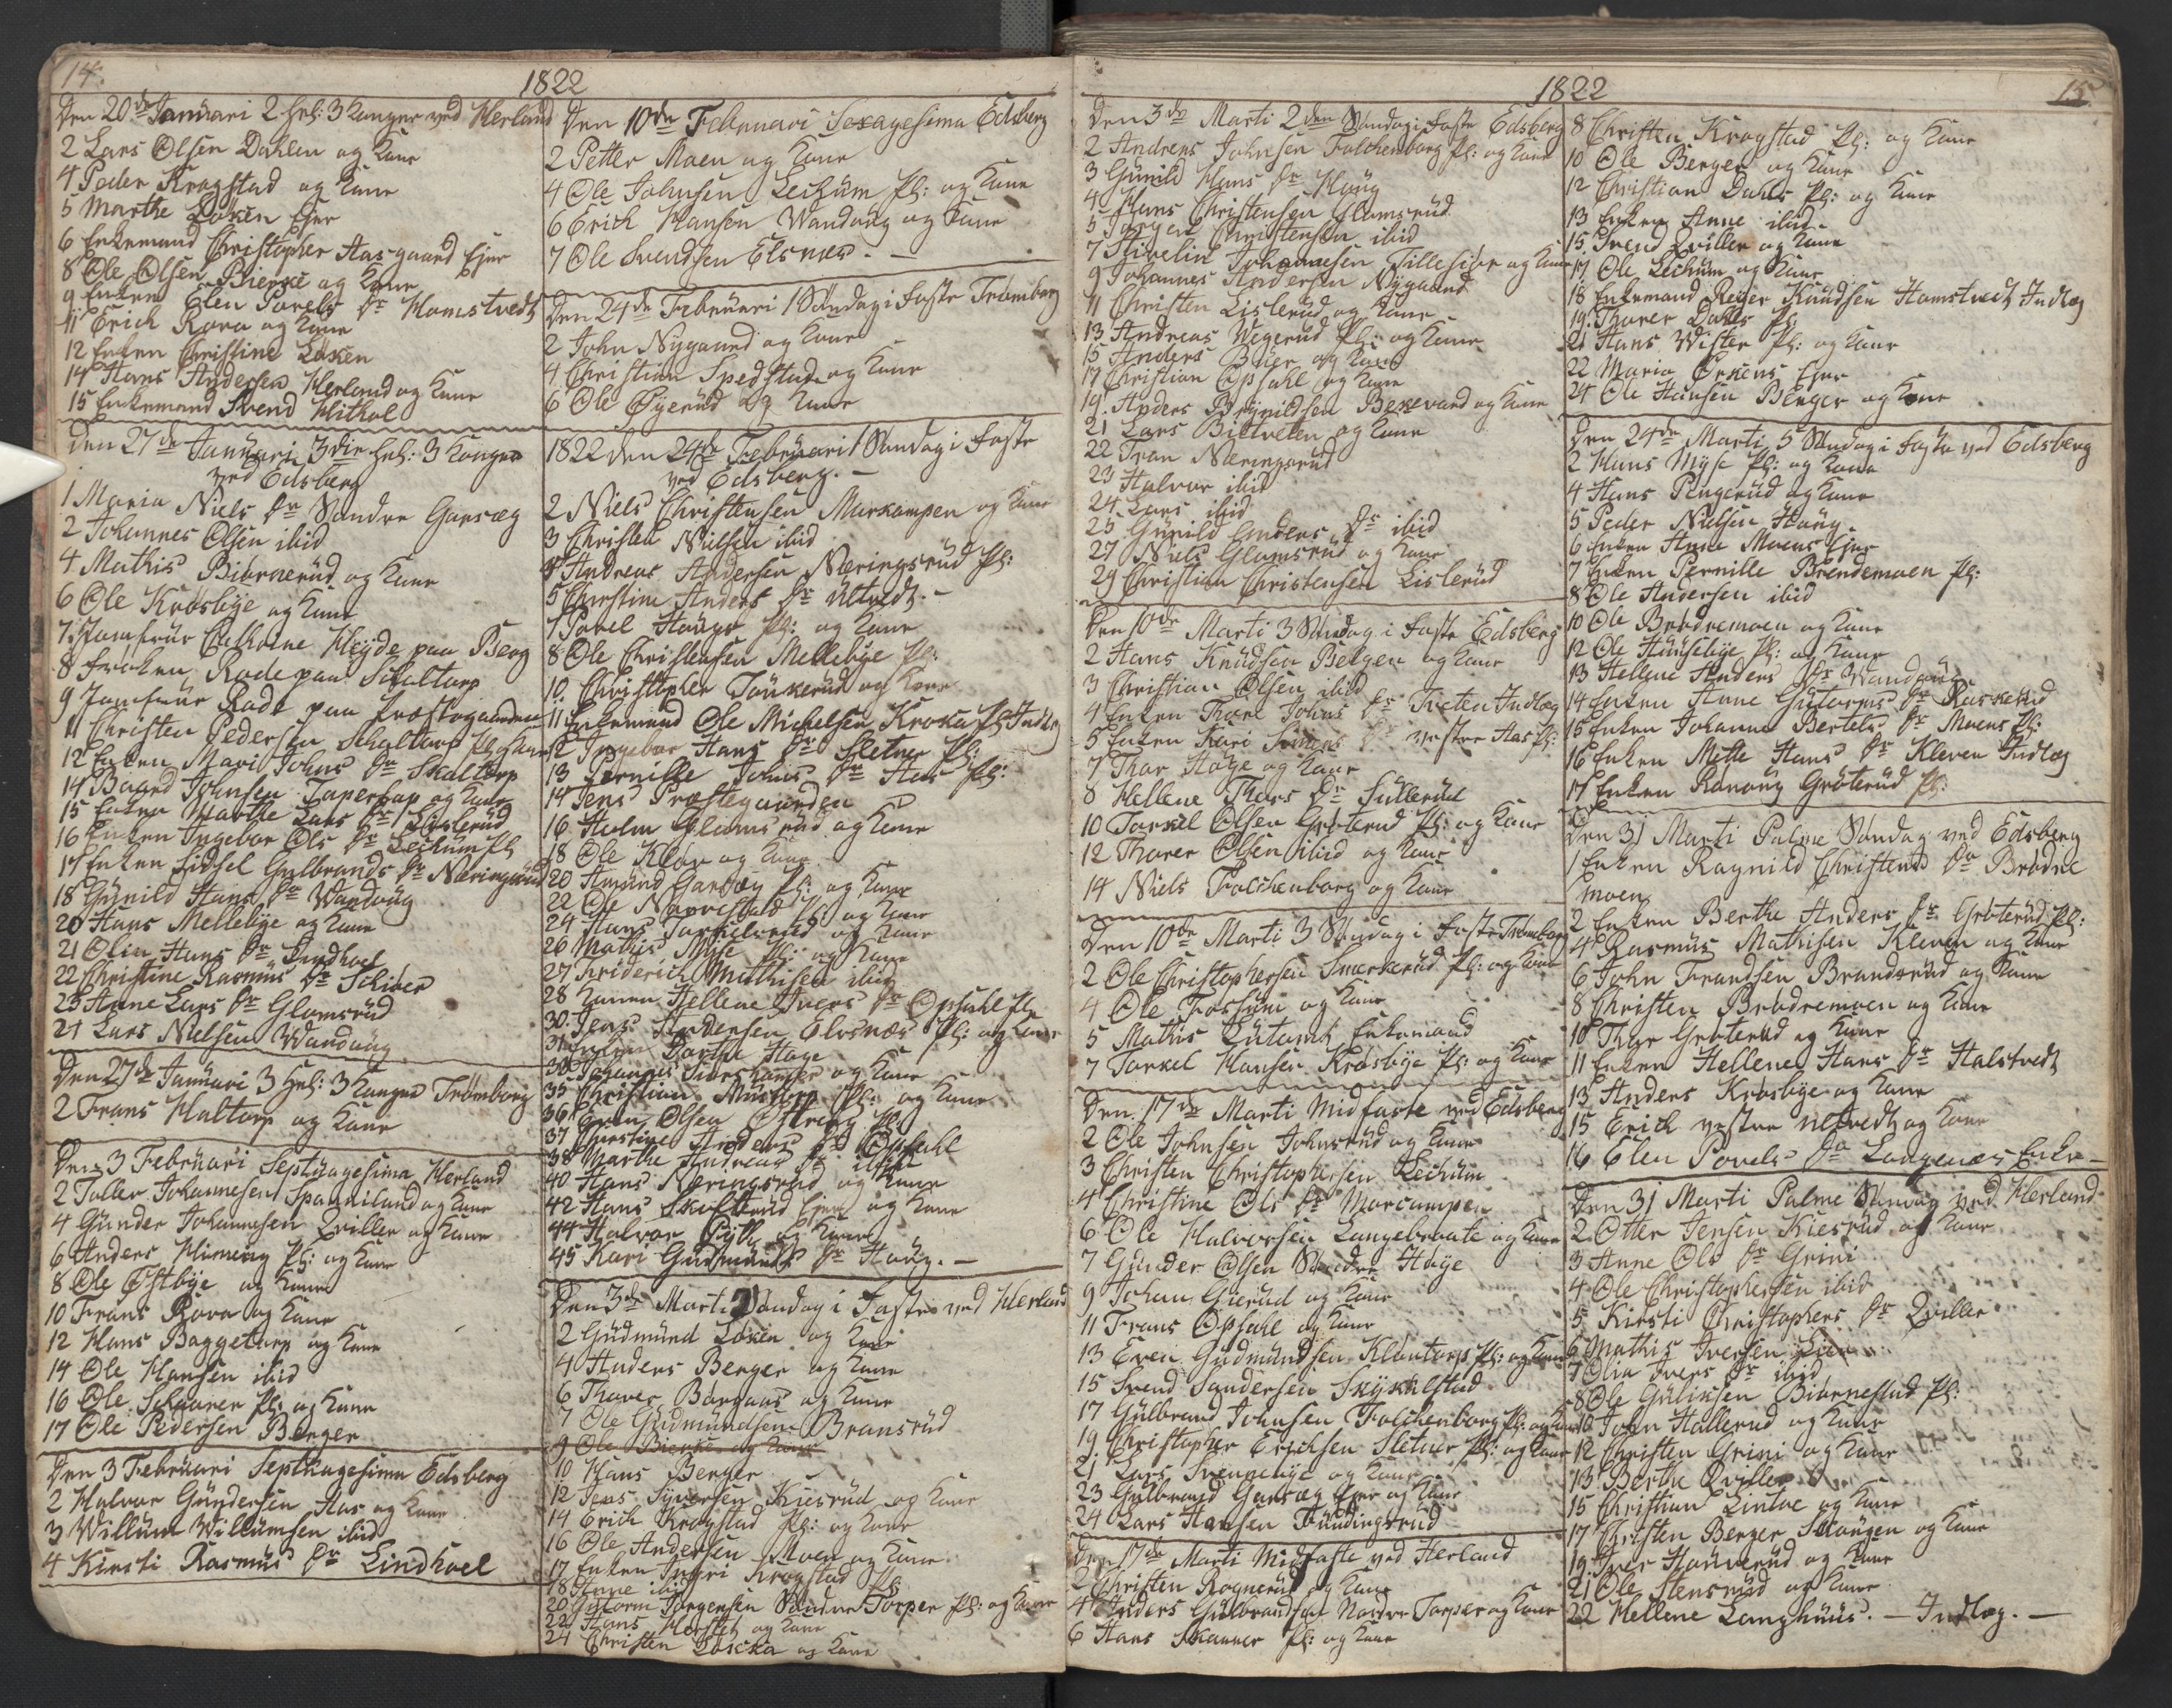 14.
1822
Den 20de Januari 2 Hel: 3 Konger ved Herland
2 Lars Olsen Dahlen og Kone
4 Peder Krogstad og Kone
5 Marthe Løken Ejer
6 Enkemand Christopher Aas-gaard Ejer
8 Ole Olsen Bierke og Kone
9 Enken Elen Povels Dr Homstvedt
11 Erich Rova og Kone
12 Enken Christine Løken
14 Hans Andersen Herland og Kone
15 Enkemand Svend Hithol
Den 27de Januari 3die Hel: 3 Konger
ved Edsberg
1 Maria Niels Dr Søndre Garsæg
2 Johannes Olsen ibid
4 Mathis Biørnerud og Kone
6 Ole Krosbye og Kone
7 Jomfrue Cathrine Heyde paa Berg
8 Frøken Rode paa Skaltorp
9 Jomfrue Rode paa Præstegaarden
11 Christen Pedersen Skaltorp Pl og Kone
12 Enken Mari Johns Dr Skaltorp
14 Baard Johnsen og Kone
15 Enken Marthe Lars Dr Lislerud
16 Enken Ingebor Ols Dr Lechum Pl
17 Enken Sidsel Gulbrands Dr Næringsrud
18 Gunild Hans Dr Wandoug
20 Hans Mellebye og Kone
21 Olia Hans Dr Lindhoel
22 Christine Rasmus Dr Schiver
23 Anne Lars Dr Glomsrud
24 Lars Nielsen Wandoug
Den 27de Januari 3 Hel: 3 Konger Trømborg
2 Frans Haltorp og Kone
Den 3 Februari Septuagesima Herland
2 Toller Johannesen Sparniland og Kone
4 Gunder Johannesen Qviller og Kone
6 Anders Himeng Pl: og Kone
8 Ole Østbye og Kone
10 Frans Rova og Kone
12 Hans Baggetorp og Kone
14 Ole Hansen ibid
16 Ole Skaarer Pl: og Kone
17 Ole Pedersen Berger
Den 3 Februari Septuagesima Edsberg
2 Halvor Gundersen Aas og Kone
3 Willum Willumsen ibid
4 Kirsti Rasmus Dr Lindhoel
Den 10de Februari Sexagesima Edsberg
2 Petter Moen og Kone
4 Ole Johnsen Lechum Pl: og Kone
6 Erich Hansen Wandoug og Kone
7 Ole Svendsen Elsnes. —
Den 24de Februari 1 Søndag i Faste Trømborg
2 John Nygaard og Kone
4 Christian Spedstad og Kone
6 Ole Øyerud og Kone
1822 Den 24de Februari 1 Søndag i Faste
ved Edsberg. —
2 Niels Christensen Markampen og Kone
3 Christen Nielsen ibid
4 Andreas Andersen Næringsrud Pl:
5 Christine Anders Dr Ultvedt. —
7 Povel Houge Pl: og Kone
8 Ole Christensen Mellebye Pl:
10 Christopher Tonkerud og Kone
11 Enkemand Ole Michelsen Kroka Pl: Indlæg
12 Ingebor Hans Dr Sletner Pl:
13 Pernille Johns Dr Aas Pl:
14 Jens Præstegaarden
16 Holm Glomsrud og Kone
18 Ole Kløv og Kone
20 Amund Garsæg Pl: og Kone
22 Ole Narvestad Pl: og Kone
24 Hans Torkelsrud og Kone
26 Mathis Myse Pl: og Kone
27 Friderich Mathisen ibid
28 Konen Hellene Ivers Dr Opsahl Pl:
30 Jens Andersen Elvsnæs Pl: og Kone
31 Enken Dorthe Hage
33 Johannes og Kone
35 Christian Mustorp Pl: og Kone
36 Even Olsen Østreng Pl:
37 Christine Anders Dr Opsahl
38 Marthe Andreas Dr ibid
40 Hans Næringsrud og Kone
42 Hans Skofterud Ejer og Kone
44 Halvor og Kone
45 Kari Gudmunds Dr Houg. —
Den 3de Marti 2 Søndag i Faste ved Herland
2 Gudmund Løken og Kone
4 Anders Berger og Kone
6 Thorer Borgaas og Kone
7 Ole Gudmundsen Bransrud
9 Ole Bierke og Kone
10 Hans Berger
12 Jens Syversen Kiesrud og Kone
14 Erich Krogstad Pl: og Kone
16 Ole Andersen Moen og Kone
17 Enken Ingri Krogstad Pl:
18 Anne ibid
20 Gutorm Jørgensen Søndre Torper Pl: og Kone
22 Hans og Kone
24 Christen Løscka og Kone
1822
15.
Den 3de Marti 2den Søndag i Faste Edsberg
2 Andreas Johnsen Folchenborg Pl: og Kone
3 Gunild Hans Dr Houg
4 Hans Christensen Glomsrud
5 Jørgen Christensen ibid
7 Johannesen Tillesiør og Kone
9 Johannes Andersen Nygaard
11 Christen Lislerud og Kone
13 Andreas Wegerud Pl: og Kone
15 Anders Buer og Kone
17 Christian Opsahl og Kone
19 Anders Brynildsen Bekevard og Kone
21 Lars Bietvelen og Kone
22 Iran Næringsrud
23 Halvor ibid
24 Lars ibid
25 Gunild Anders Dr ibid
27 Niels Glomsrud og Kone
29 Christian Christensen Lislerud
Den 10de Marti 3 Søndag i Faste Edsberg
2 Hans Knudsen Belgen og Kone
3 Christian Olsen ibid
4 Enken Thore Johns Dr Tveten Indlæg
5 Enken Kari Simens Dr vestre Aas Pl:
7 Thor Høye og Kone
8 Hellene Thors Dr Sullerud
10 Torkel Olsen Grøterud Pl: og Kone
12 Thorer Olsen ibid og Kone
14 Niels Folchenborg og Kone
Den 10de Marti 3 Søndag i Faste Trømborg
2 Ole Christophersen Smerkerud Pl: og Kone
4 Ole Fossum og Kone
5 Mathis Enkemand
7 Torkel Hansen Krosbye Pl: og Kone
Den 17de Marti Midfaste ved Edsberg
2 Ole Johnsen Johnsrud og Kone
3 Christen Christophersen Lechum
4 Christine Ols Dr Marcampen
6 Ole Halvorsen Langebraate og Kone
7 Gunder Olsen Søndre Høye
9 Johan Guerud og Kone
11 Frans Opsahl og Kone
13 Even Gudmundsen Klontorp Pl: og Kone
15 Svend Sandersen Skyxelstad
17 Gulbrand Johnsen Folchenborg Pl: og Kone
19 Christopher Erichsen Sletner Pl: og Kone
21 Lars Svennebye og Kone
23 Gulbrand Garsæg Ejer og Kone
24 Lars Hansen Fundingsrud
Den 17de Marti Midfaste ved Herland
2 Christen Rognerud og Kone
4 Anders Gulbrandsen Nordre Torper og Kone
6 Hans Skaarer Pl: og Kone
8 Christen Krogstad Pl: og Kone
10 Ole Berger og Kone
12 Christian Dahls Pl: og Kone
13 Enken Anne ibid
15 Svend Qviller og Kone
17 Ole Lechum og Kone
18 Enkemand Reyer Knudsen Homstvedt Indlæg
19 Thorer Dahls Pl
21 Hans Wister Pl: og Kone
22 Maria Ørkens Ejer
24 Ole Hansen Berger og Kone
Den 24de Marti 5 Søndag i Faste ved Edsberg
2 Hans Myse Pl: og Kone
4 Hans Pengerud og Kone
5 Peder Nielsen Houg
6 Enken Anne Moens Ejer
7 Enken Pernille Brendemoen Pl:
8 Ole Andersen ibid
10 Ole Brødremoen og Kone
12 Ole Pl: og Kone
13 Hellene Anders Dr Wandoug
14 Enken Anne Gutorms Dr Raskerud
15 Enken Johanne Bertels Dr Moens Pl:
16 Enken Mette Hans Dr Kleven Indlæg
17 Enken Ranoug Grøterud Pl:
Den 31 Marti Palme Søndag ved Edsberg
1 Enken Ragnild Christens Dr Brødre
moen
2 Enken Berthe Anders Dr Grøterud Pl:
4 Rasmus Mathisen Kleven og Kone
6 John Frandsen Brandsrud og Kone
8 Christen Brødremoen og Kone
10 Thor Grøterud og Kone
11 Enken Hellene Hans Dr Halstvedt
13 Anders Krosbye og Kone
15 Erich vestre Ultvedt og Kone
16 Elen Povels Dr Langenæs Enke —
Den 31 Marti Palme Søndag ved Herland
2 Otter Jensen Kiesrud og Kone
3 Anne Ols Dr Grini
4 Ole Christophersen ibid
5 Kirsti Christophers Dr Qviller
6 Mathis Iversen Lien
7 Olia Ivers Dr ibid
8 Ole Gulixsen Biørnestad Pl:
10 John Hallerud og Kone
12 Christen Grini og Kone
13 Berthe Qviller
15 Christian Lintoe og Kone
17 Christen Berger Skougen og Kone
19 Iver Houverud og Kone
21 Ole Stensrud og Kone
22 Hellene Langhuus. — Indlæg. —